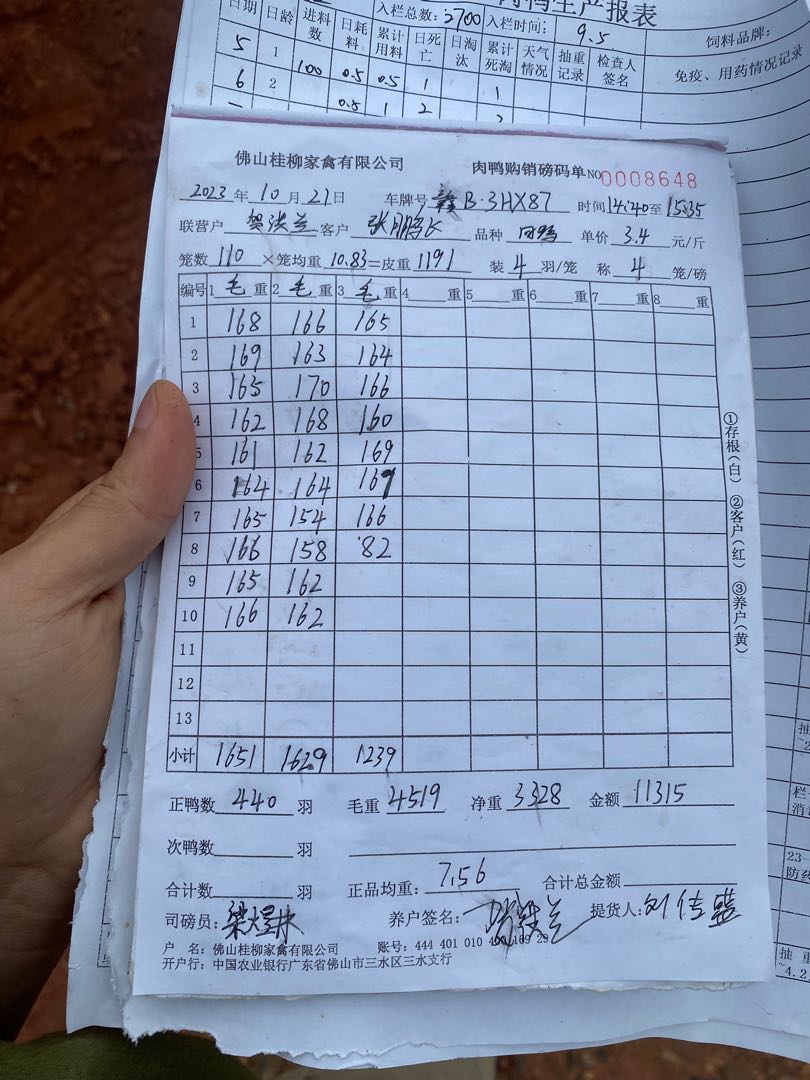 肉鸭生产报表
日期 日龄 进料数 日耗料 累计用料 日死亡 日淘汰 累计死淘 天气情况 抽重记录 检查人签名
入栏总数:2700 入栏时间: 9.5 饲料品牌:
免疫、用药情况记录
5 1 100 0.5 0.5 1 1
6 2 0.5 1 2
佛山桂柳家禽有限公司 肉鸭购销磅码单 NO 0008648
2023 年 10 月 21 日 车牌号 赣B·3HX87 时间 14:40 至 15:35
联营户 贺洪兰 客户 张鹏 品种 肉鸭 单价 3.4 元/斤
笼数 110 ×笼均重 10.83 =皮重 1191 装 4 羽/笼 称 4 笼/磅
编号 1 毛 重 2 毛 重 3 毛 重 4 重 5 重 6 重 7 重 8 重
1 168 166 165
2 169 163 164
3 165 170 166
4 162 168 160
5 161 162 169
6 164 164 167
7 165 154 166
8 166 158 82
9 165 162
10 166 162
11
12
13
小计 1651 1629 1239
正鸭数 440 羽 毛重 4519 净重 3328 金额 11315
次鸭数 羽
合计数 羽 正品均重: 7.56 合计总金额
司磅员: 养户签名: 提货人:
户 名: 佛山桂柳家禽有限公司 账号: 444 401 010 400 169 29
开户行: 中国农业银行广东省佛山市三水区三水支行
①存根(白) ②客户(红) ③养户(黄)